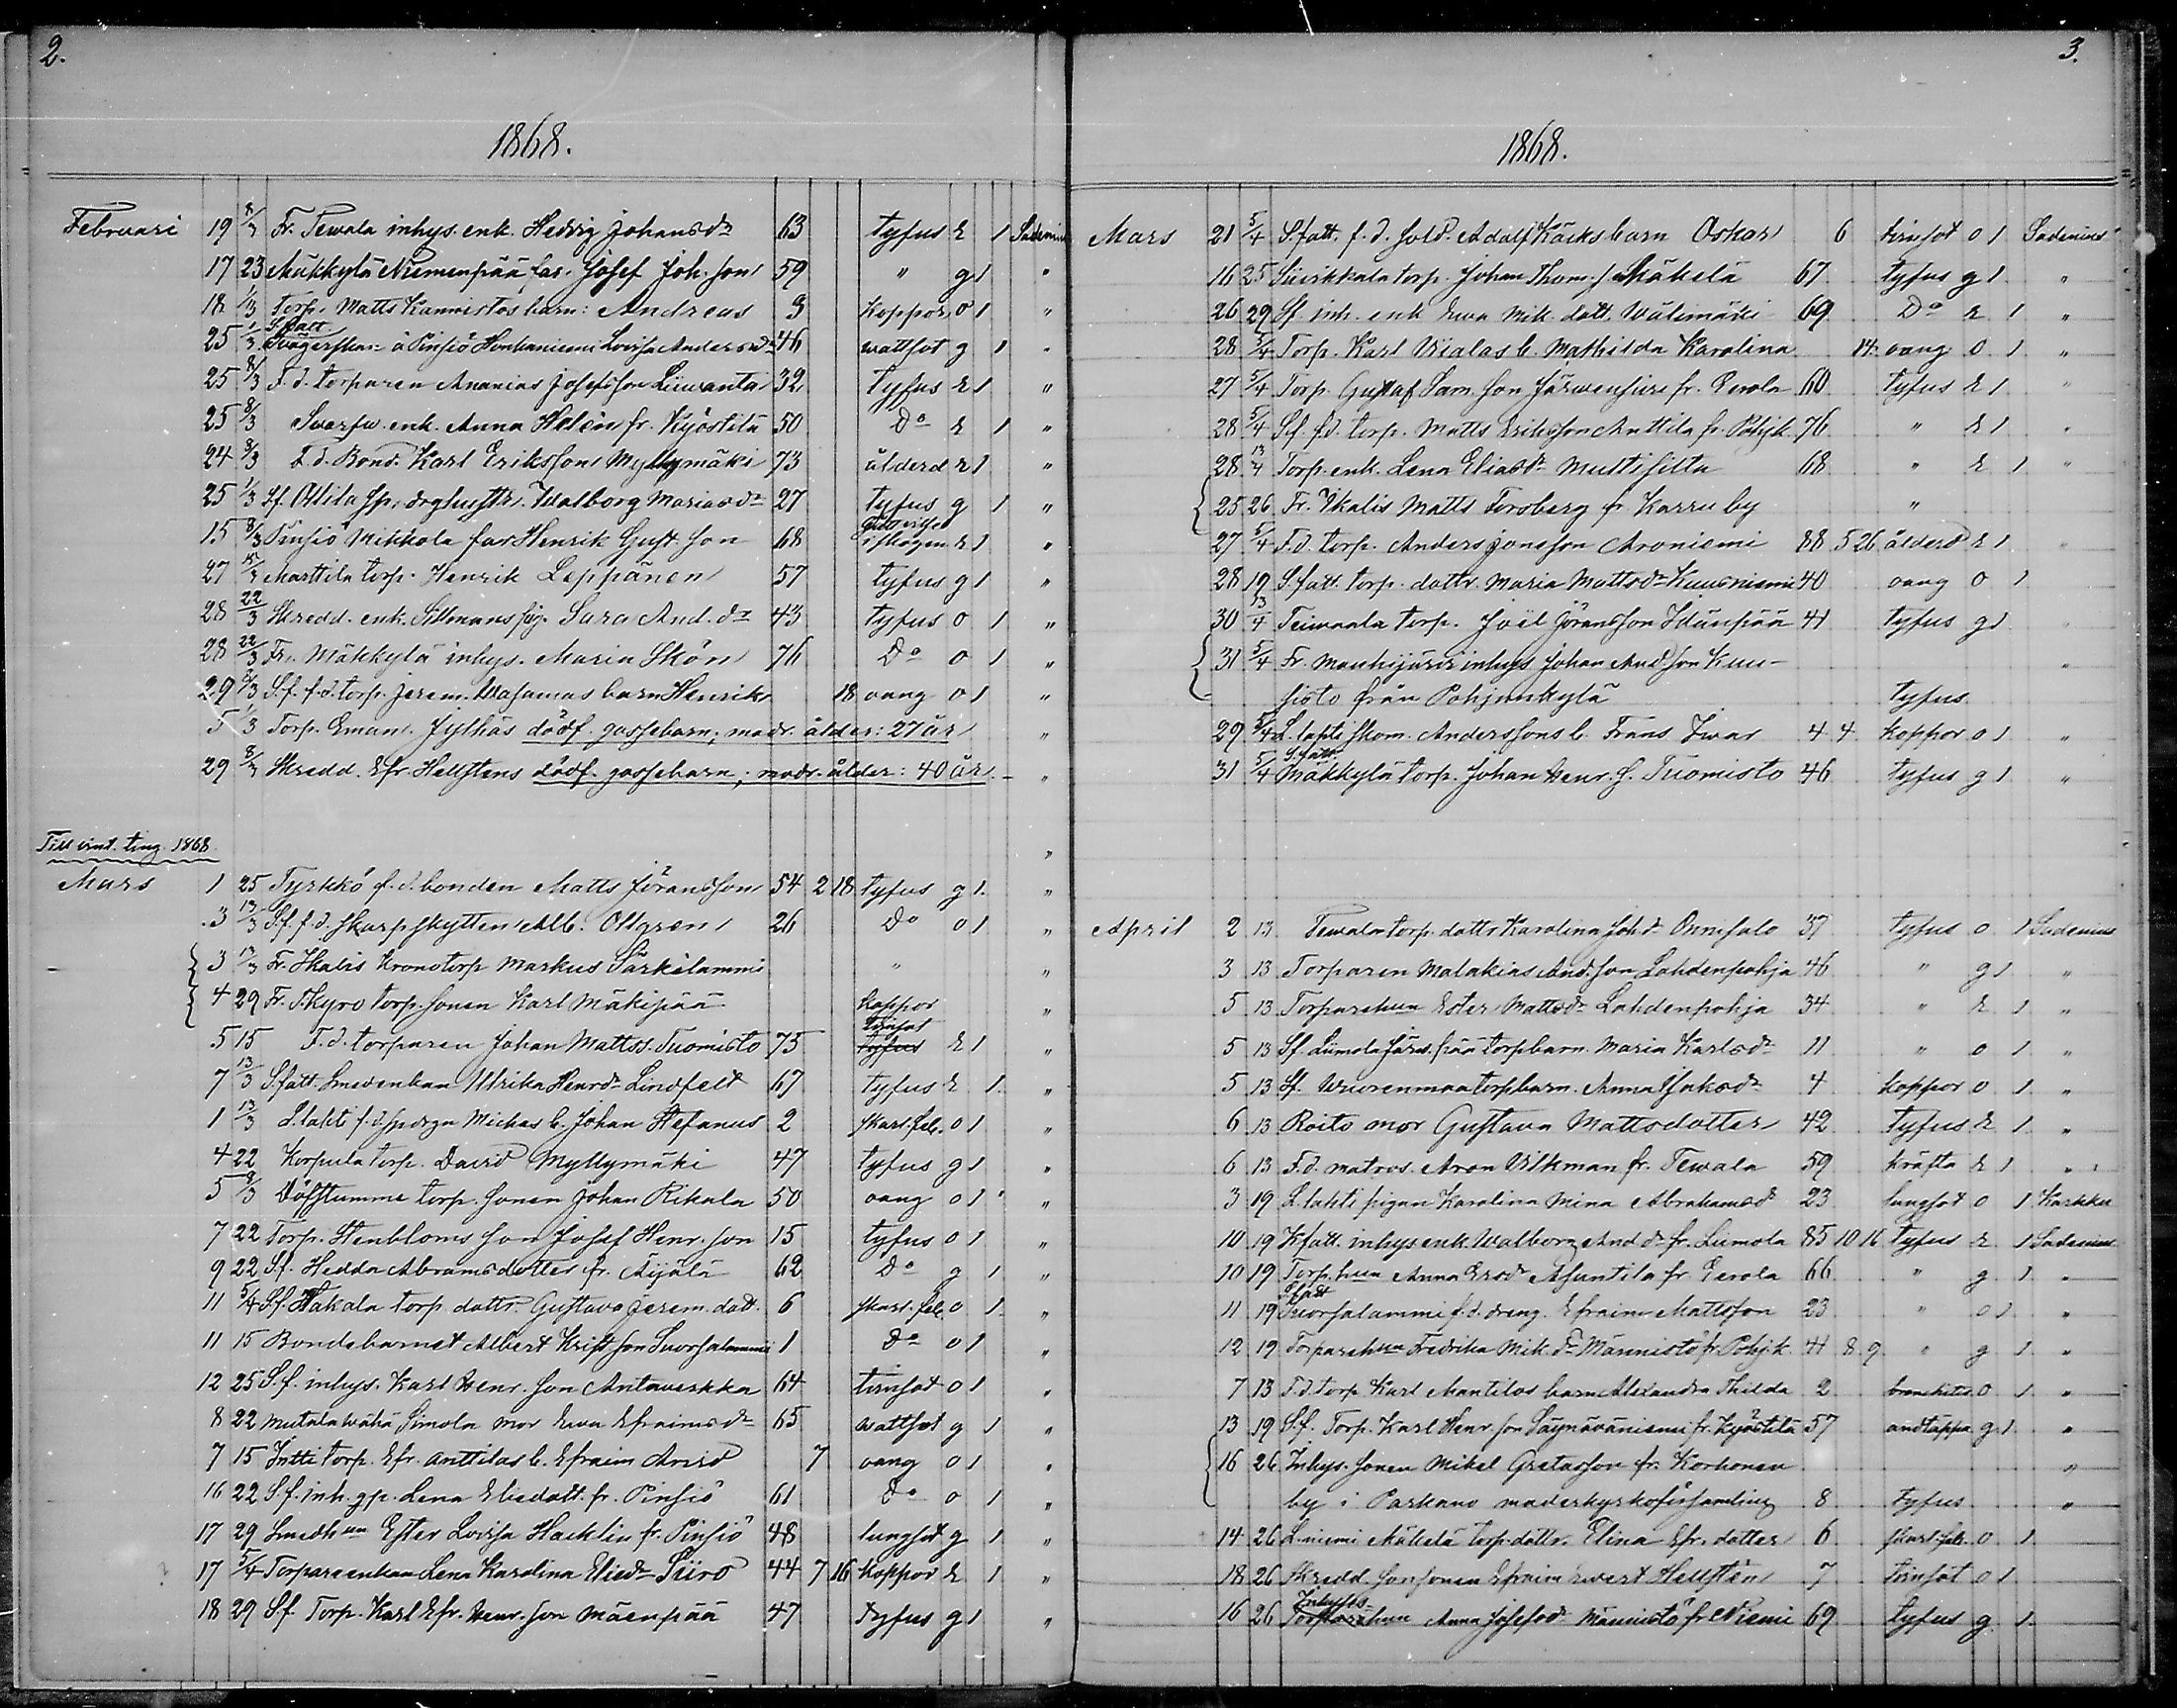 2.
1868.
Februari 19 8/3 Fr. Tewala inhys. enk. Hedvig Johansdr 63 tyfus e 1 Sadenius
17 23 Mäkkylä Niemenpää far. Josef Joh. son 59 " g 1 "
18 1/3 Torp. Matts Kannistos barn: Andreas 3 koppor o 1 "
S. fatt
25 1/3 Svägerskan å Pinsiö Honkaniemi Lovisa Andersdr 46 wattsot g 1 "
25 8/3 F. d. torparen Ananias Josefsson Liiwanta 32 tyfus e 1 "
25 8/3 Svarfw. enk. Anna Helén fr. Kyöstilä 50 Do e 1 "
24 8/3 F. d. Bond. Karl Eriksson Myllymäki 73 ålderd e 1 "
25 1/3 Sf. Ollila sp. drghustr. Walborg Mariasdr 27 tyfus g 1 "
15 8/3 Pinsiö Mikkola far Henrik Gust. son 68 i skogen e 1 "
27 Marttila torp. Henrik Leppänen 57 tyfus g 1 "
28 22/3 Skredd. enk. Sillmans pig. Sara And. dr 43 tyfus o 1 "
28 22/3 Fr. Mäkkylä inhys. Maria Skön 76 Do o 1 "
29 8/3 S. f. f. d. torp. Jerem. Wasamas barn Henrik 18 oang o 1 "
5 1/3 Torp. Eman. Jylhäs dödf. gossebarn; modr. ålder: 27 år "
29 8/3 Skredd. Efr. Hellstens dödf. gossebarn; modr. ålder: 40 år. "
Till vint. ting 1868 "
Mars 1 25 Tyrkkö f. d. bonden Matts Göransson 54 2 18 tyfus g 1. "
3 13/3 S. f. f. d. skarpskytten Alb. Ollgren 26 Do o 1 "
3 13/3 Fr. Ikalis Kronotorp Markus Särkilammi " "
4 29 Fr. Kyro torp. sonen Karl Mäkipää koppor "
tvinsot
5 15 F. d. torparen Johan Mattss. Tuomisto 75 tyfus e 1 "
7 13/3 S. fatt. Smedenkan Ulrika Henrdr Lindfelt 67 tyfus e 1. "
1 13/3 L. lahti f. d. spdrgn Michas b. Johan Stefanus 2 skarl. feb. o 1 "
4 22 Korpula torp. David Myllymäki 47 tyfus g 1 "
5 8/3 Döfstumme torp. sonen Johan Rikala 50 oang o 1 "
7 22 Torp. Stenbloms son Josef Henr. son 15 tyfus o 1 "
9 22 Sf. Hedda Abramsdotter fr. Äijälä 62 Do g 1 "
11 5/4 Sf. Hakala torp. dottr. Gustava Jerem. dott. 6 skarl. feb. o 1 "
11 15 Bondebarnet Albert Krist. son Suorsalammi 1 Do o 1 "
12 25 S. f. inhys. Karl Henr. son Antaverkka 64 tvinsot o 1 "
8 22 Mutala Wähä Simola mor Ewa Efraimsdr 65 wattsot g 1 "
7 15 Intti torp. Efr. Anttilas b. Efraim Arvid 7 oang o 1 "
16 22 S. f. inh. gp. Lena Eliedott. fr. Pinsiö 61 Do o 1 "
17 29 Smedhun Ester Lovisa Hacklin fr. Pinsiö 48 lungsot g 1 "
17 5/4 Torpareenkan Lena Karolina Eliedr Siiro 44 7 16 koppor e 1 "
18 29 Sf. Torp. Karl Efr. Henr. son Mäenpää 47 tyfus g 1 "
3.
1868.
Mars 21 5/4 S. fatt. f. d. sold. Adolf Käcks barn Oskar 6 tvinsot o 1 Sadenius
16 25 Siirikkala torp. Johan Thom. s. Mäkelä 67 tyfus g 1. "
26 29 Sf. inh. enk Ewa Mik. dott. Wälimäki 69 Do e 1 "
28 5/4 Torp. Karl Wialas b. Mathilda Karolina 14 oang o 1. "
27 5/4 Torp. Gustaf Sam. son Järwensivu fr. Gerola 60 tyfus e 1. "
28 5/4 Sf. f. d. torp. Matts Eriksson Anttila fr. Pohjk. 76 " e 1 "
28 13/4 Torp. enk. Lena Eliasdr Muttisilta 68 " e 1 "
25 26 Fr. Ikalis Matts Forsberg fr. Karru by "
27 5/4 F. d. torp. Anders Jonsson Aroniemi 88 5 26 ålderd e 1 "
28 19 S. fatt. torp. dottr. Maria Mattsdr Kuusniemi 40 oang o 1
30 13/4 Teiwaala torp. Joël Göransson Idänpää 41 tyfus g 1
31 5/4 Fr. Mouhijärvi inhys Johan And. son Kuu- "
sisto från Pohjankylä tyfus
29 5/4 L. lahti skom. Anderssons b. Frans Iwar 4 4 koppor o 1 "
S. fatt
31 5/4 Mäkkylä torp. Johan Henr. s. Tuomisto 46 tyfus g 1 "
April 2 13 Tewala torp. dottr Karolina Joh.dr Onnisalo 37 tyfus o 1 Sadenius
3 13 Torparen Malakias And. son Lahdenpohja 46 " g 1 "
5 13 Torparehun Ester Mattsdr Lahdenpohja 34 " e 1 "
5 13 Sf. Liimola Järvenpää torpbarn. Maria Karlsdr 11 " o 1 "
5 13 Sf. Wuorenmaa torpbarn. Anna Isaksdr 4 koppor o 1. "
6 13 Roito mor Gustava Mattsdotter 42 tyfus e 1. "
6 13 F. d. matros. Aron Vilkman fr. Tewala 59 kräfta e 1 "
3 19 L. lahti pigan Karolina Mina Abrahamsdr 23 lungsot o 1 Karkku
10 19 K. fatt. inhys enk. Walborg And.dr fr. Liimola 85 10 16 tyfus e 1 Sadenius
10 19 Torp. hun Anna Ersdr Asuntila fr. Gerola 66 " g 1. "
S. fatt
11 19 Suorsalammi f. d. dreng. Efraim Mattsson 23 " o 1. "
12 19 Torparehun Fredrika Mik.dr Männistö fr. Pohj. k. 41 8 9 " g 1. "
7 13 F. d. torp Karl Mantilas barn Alexandra Thilda 2 bronchitis o 1. "
13 19 Sf. Torp. Karl Henr. son Säynäväniemi fr. Kyöstilä 57 andtäppa g 1. "
16 26 Inhys. sonen Mikel Gretasson fr. Korhonen "
by i Parkano moderkyrkoförsamling 8 tyfus "
14 26 L. niemi Mäkelä torp. dottr. Elina Efr. dotter 6 skarl. feb. o 1.
18 26 Skredd. sonsonen Efraim Evert Hellstén 7 tvinsot o 1
Inhyses
16 26 Torparehun Anna Josefsdr Männistö fr. Niemi 69 tyfus g 1.